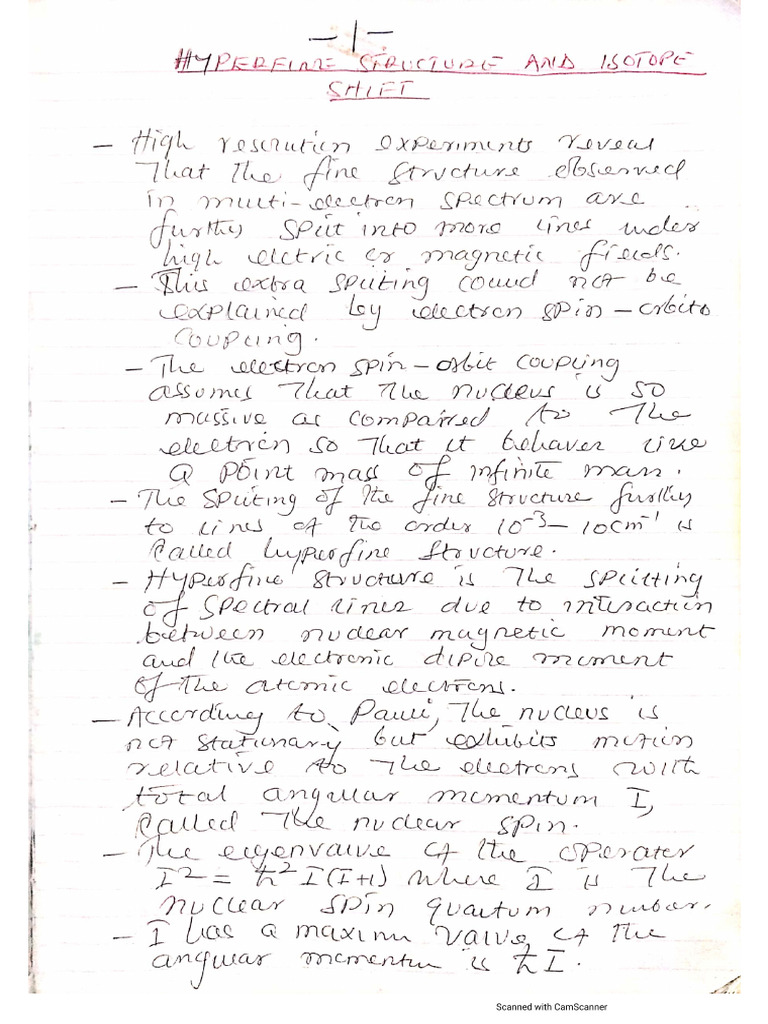 - 1 -
HYPERFINE STRUCTURE AND ISOTOPE
SHIFT
- High resolution experiments reveal
that the fine structure observed
in multi-electron spectrum are
further split into more lines under
high electric or magnetic fields.
- This extra spliting could not be
explained by electron spin-orbito
coupling.
- The electron spin-orbit coupling
assumes that the nucleus is so
massive as compaired to the
electron so that it behaves like
a point mass of infinite mass.
- The spliting of the fine structure further
to lines of the order 10⁻³ - 10cm⁻¹ is
called hyperfine structure.
- Hyperfine structure is the splitting
of spectral lines due to interaction
between nuclear magnetic moment
and the electronic dipole moment
of the atomic electrons.
- According to Pauli, the nucleus is
not stationary but exhibits motion
relative to the electrons with
total angular momentum I,
called the nuclear spin.
- The eigenvalve of the operator
I² = ħ² I(I+1) where I is the
nuclear spin quantum number.
- I has a maximum valve of the
angular momentum is ħI.
Scanned with CamScanner